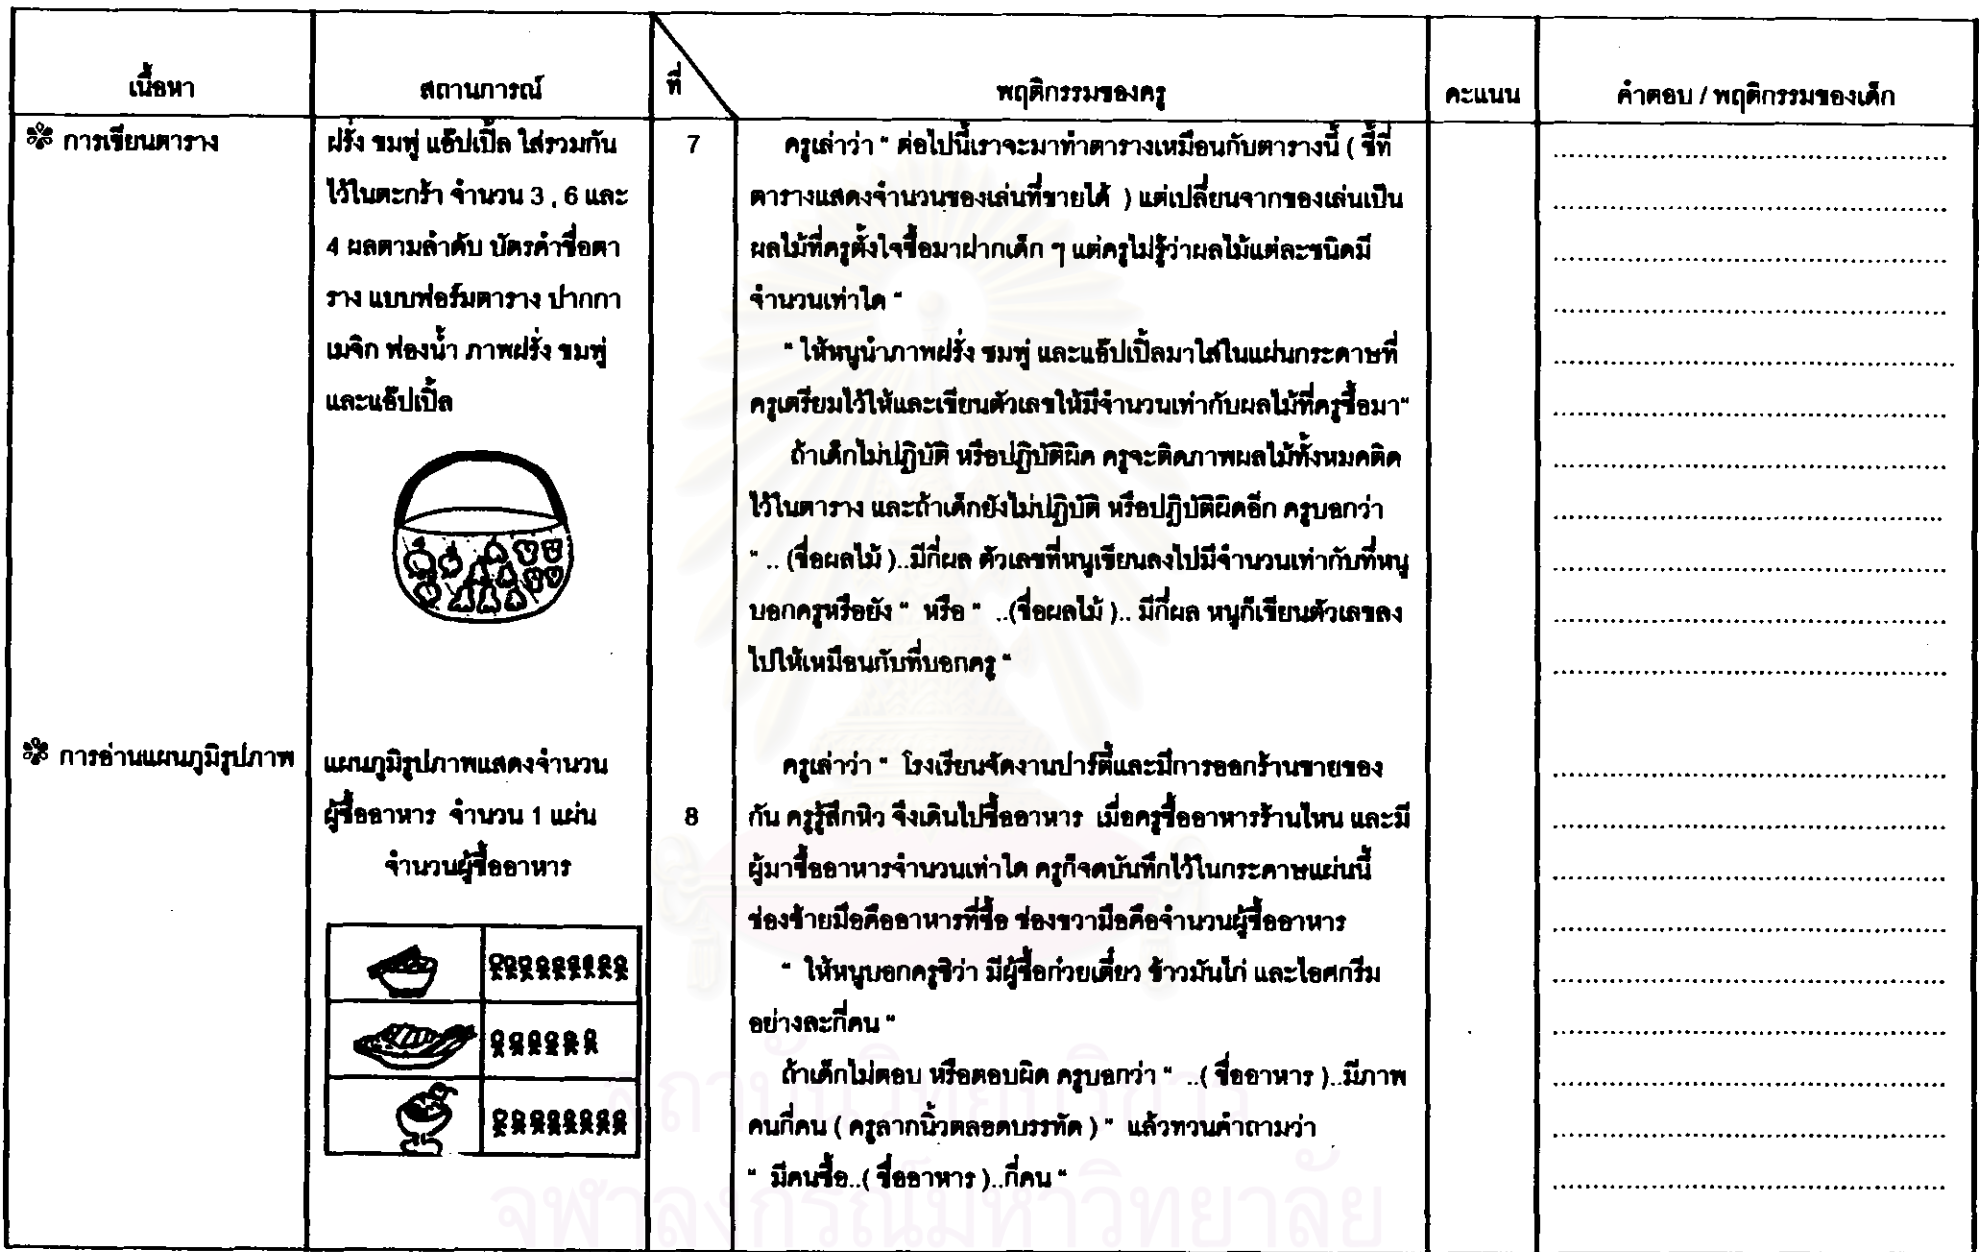 เนื้อหา
สถานการณ์
ที่
พฤติกรรมของครู
คะแนน
คำตอบ / พฤติกรรมของเด็ก
การเขียนตาราง
ฝรั่ง ชมพู่ แอ๊ปเปิ้ล ใส่รวมกัน
ไว้ในตะกร้า จำนวน 3 , 6 และ
4 ผลตามลำดับ บัตรคำชื่อตา
ราง แบบฟอร์มตาราง ปากกา
เมจิก ฟองน้ำ ภาพฝรั่ง ชมพู่
และแอ๊ปเปิ้ล
7
ครูเล่าว่า " ต่อไปนี้เราจะมาทำตารางเหมือนกับตารางนี้ ( ชี้ที่
ตารางแสดงจำนวนของเล่นที่ขายได้ ) แต่เปลี่ยนจากของเล่นเป็น
ผลไม้ที่ครูตั้งใจซื้อมาฝากเด็ก ๆ แต่ครูไม่รู้ว่าผลไม้แต่ละชนิดมี
จำนวนเท่าใด "
" ให้หนูนำภาพฝรั่ง ชมพู่ และแอ๊ปเปิ้ลมาใส่ในแผ่นกระดาษที่
ครูเตรียมไว้ให้และเขียนตัวเลขให้มีจำนวนเท่ากับผลไม้ที่ครูซื้อมา"
ถ้าเด็กไม่ปฏิบัติ หรือปฏิบัติผิด ครูจะติดภาพผลไม้ทั้งหมดติด
ไว้ในตาราง และถ้าเด็กยังไม่ปฏิบัติ หรือปฏิบัติผิดอีก ครูบอกว่า
" .. (ชื่อผลไม้ )..มีกี่ผล ตัวเลขที่หนูเขียนลงไปมีจำนวนเท่ากับที่หนู
บอกครูหรือยัง " หรือ " ..(ชื่อผลไม้ ).. มีกี่ผล หนูก็เขียนตัวเลขลง
ไปให้เหมือนกับที่บอกครู "
การอ่านแผนภูมิรูปภาพ
แผนภูมิรูปภาพแสดงจำนวน
ผู้ซื้ออาหาร จำนวน 1 แผ่น
จำนวนผู้ซื้ออาหาร
8
ครูเล่าว่า " โรงเรียนจัดงานปาร์ตี้และมีการออกร้านขายของ
กัน ครูรู้สึกหิว จึงเดินไปซื้ออาหาร เมื่อครูซื้ออาหารร้านไหน และมี
ผู้มาซื้ออาหารจำนวนเท่าใด ครูก็จดบันทึกไว้ในกระดาษแผ่นนี้
ช่องซ้ายมือคืออาหารที่ซื้อ ช่องขวามือคือจำนวนผู้ซื้ออาหาร
" ให้หนูบอกครูซิว่า มีผู้ซื้อก๋วยเตี๋ยว ข้าวมันไก่ และไอศกรีม
อย่างละกี่คน "
ถ้าเด็กไม่ตอบ หรือตอบผิด ครูบอกว่า " ..( ชื่ออาหาร )..มีภาพ
คนกี่คน ( ครูลากนิ้วตลอดบรรทัด ) " แล้วทวนคำถามว่า
" มีคนซื้อ..( ชื่ออาหาร )..กี่คน "
สถาบันวิทยบริการ
จุฬาลงกรณ์มหาวิทยาลัย